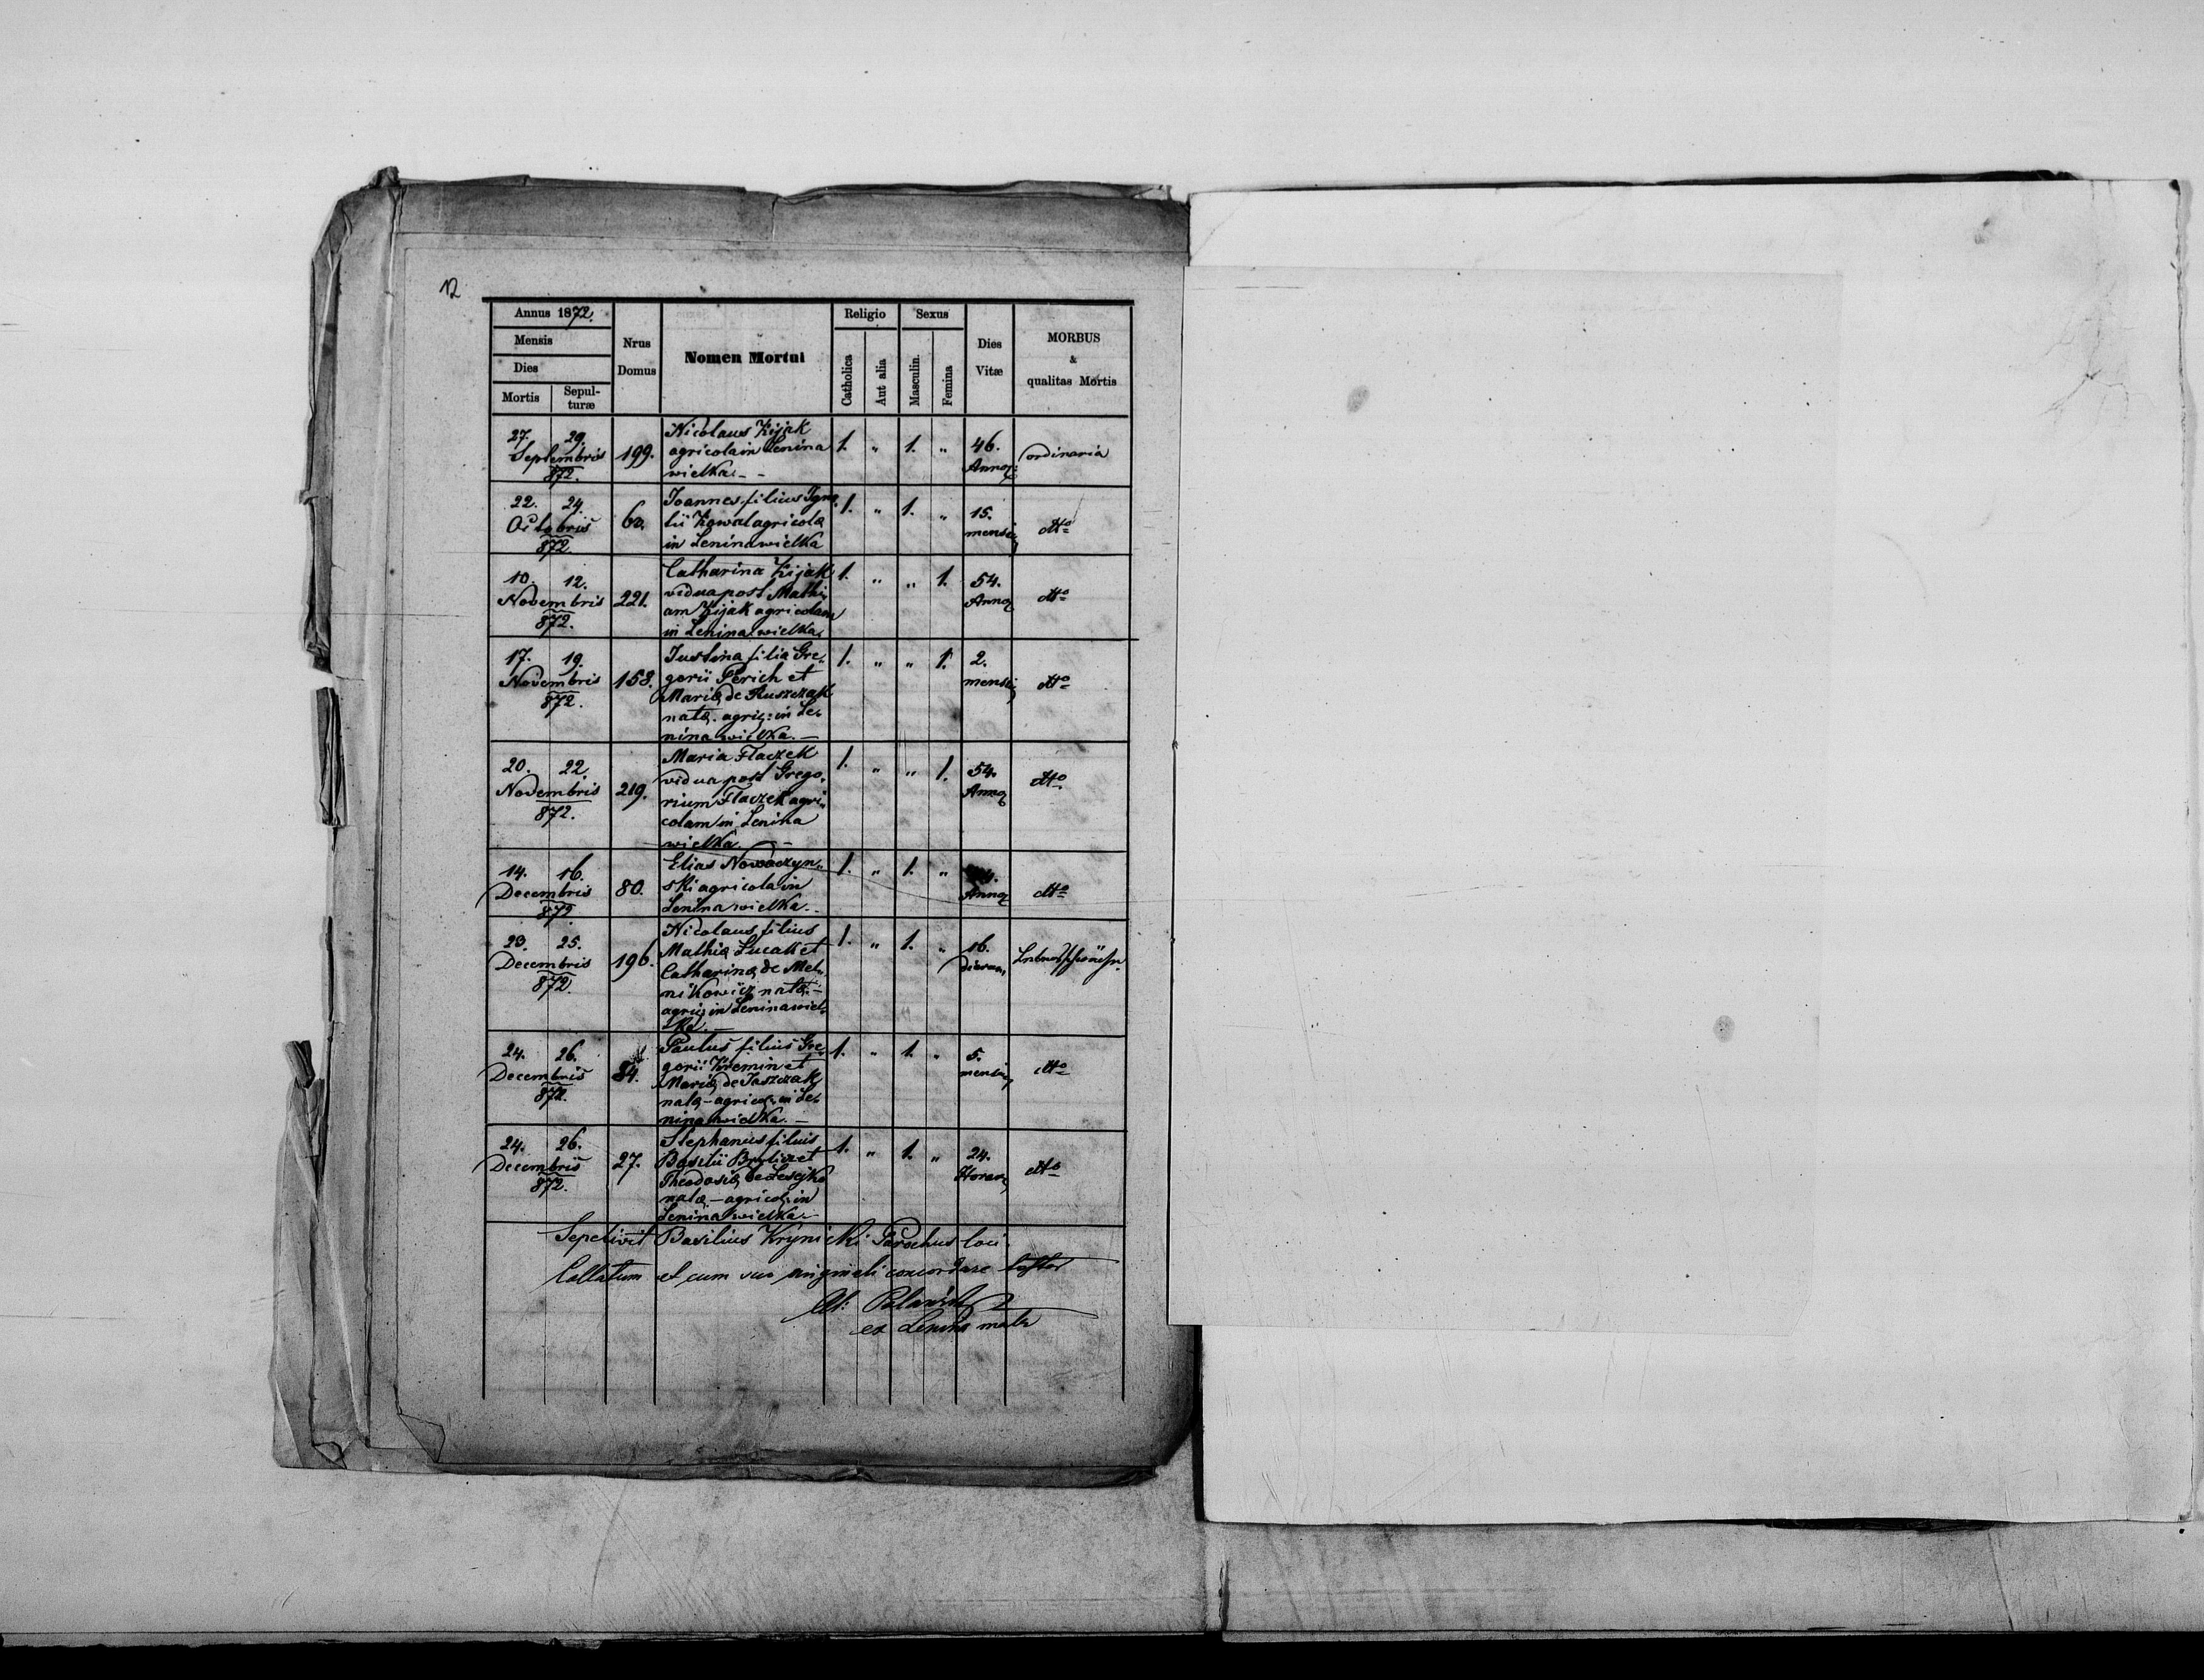 12
Annus 1872.
Mensis
Dies
Mortis
Sepul-
turæ
Nrus
Domus
Nomen Mortui
Religio
Catholica
Aut alia
Sexus
Masculin.
Femina
Dies
Vitæ
MORBUS
&
qualitas Mortis
27. 29. Septembris 872. 199. Nicolaus Kijak 1. " 1. " 46. Annoz ordinaria
agricola in Lenina
wielka. - -
22. 24. Octobris 872. 60. Joannes filius Igna- 1. " 1. " 15. mensiu dtto
tii Kowal agricola
in Lenina wielka
10. 12. Novembris 872. 221. Catharina Kijak 1. " " 1. 54. Anno dtto
vidua post Mathi-
am Kijak agricolam
in Lenina wielka.
17. 19. Novembris 872. 158. Justina filia Gre- 1. " " 1. 2. mensiu dtto
gorii Perich et
Mariæ de Ruszczak
natæ. agric: in Le-
nina wielka. -
20. 22. Novembris 872. 219. Maria Flaczek 1. " " 1. 54. Anno dtto
vidua post Grego-
rium Flaczek agri-
colam in Lenina
wielka. -
14. 16. Decembris 872. 80. Elias Nowaczyn- 1. " 1. " Anno dtto
ski agricola in
Lenina wielka. -
23. 25. Decembris 872. 196. Nicolaus filius 1. " 1. " 16. dierum Lebensschwäche
Mathiæ Lucak et
Catharinæ de Mel-
nikowicz natæ -
agric: in Lenina wiel-
ka. -
24. 26. Decembris 872. 84. Paulus filius Gre- 1. " 1. " 5. mensiu dtto
gorii Kremin et
Mariæ de Jaszczak
natæ - agricol: in Le-
nina wielka. -
24. 26. Decembris 872. 27. Stephanus filius 1. " 1. " 24. Horar dtto
Basilii et
Theodosiæ de
natæ - agricol: in
Lenina wielka -
Sepelivit Basilius Krynicki Parochus loci
Collatum et cum suo originali concordare testor
ex Lenina mała